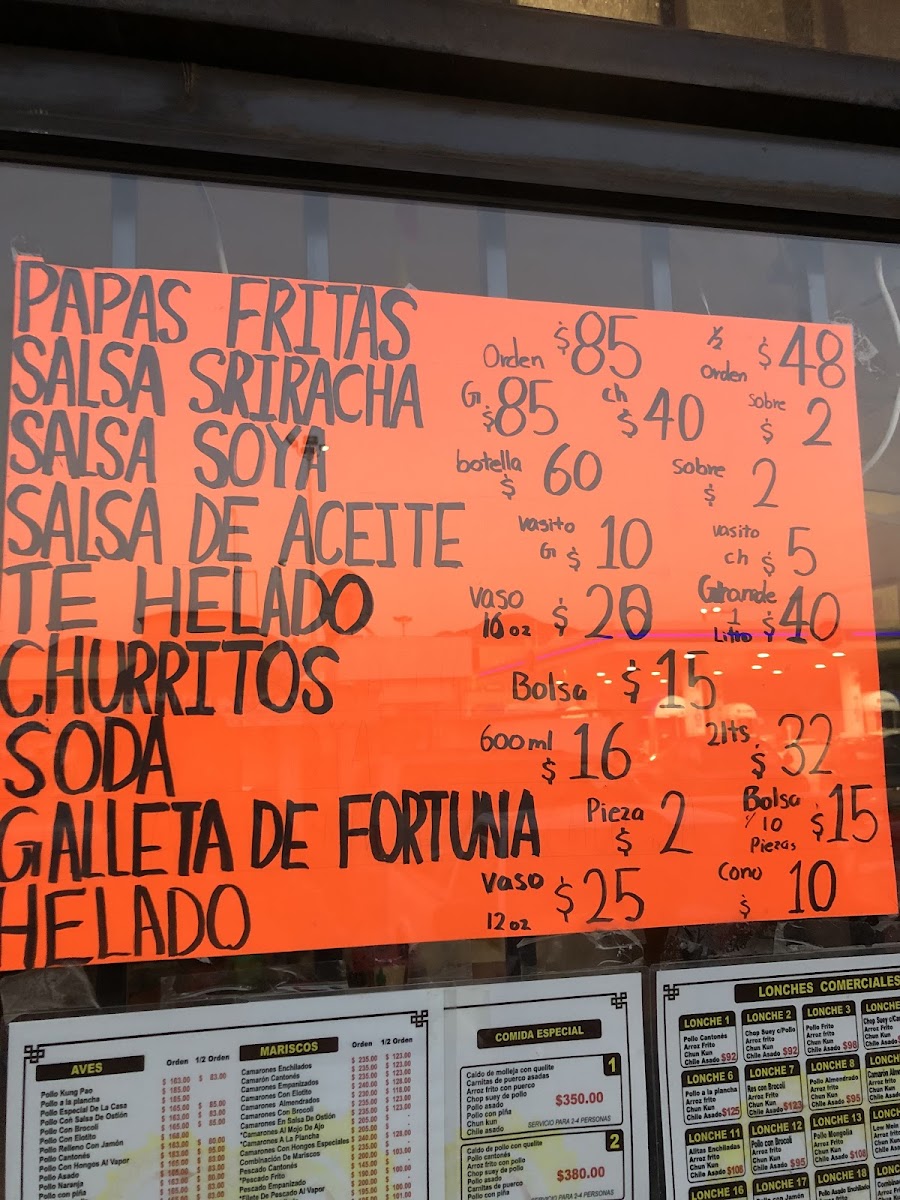 PAPAS FRITAS Orden $85 1/2 Orden $48
SALSA SRIRACHA G. $85 ch $40 Sobre $2
SALSA SOYA botella $60 Sobre $2
SALSA DE ACEITE vasito G $10 vasito ch $5
TE HELADO Vaso 16 oz $20 Grande 1 Litro $40
CHURRITOS Bolsa $15
SODA 600ml $16 2lts. $32
GALLETA DE FORTUNA Pieza $2 Bolsa 10 Piezas $15
HELADO Vaso 12 oz $25 Cono $10
AVES Orden 1/2 Orden
Pollo Kung Pao $ 163.00 $ 83.00
Pollo a la plancha
Pollo Especial De La Casa
Pollo Con Salsa De Ostión
Pollo Con Brocoli
Pollo Con Elotito
Pollo Relleno Con Jamón
Pollo Cantonés
Pollo Con Hongos Al Vapor
Pollo Asado
Pollo Naranja
Pollo con piña
MARISCOS Orden 1/2 Orden
Camarones Enchilados $ 235.00 $ 123.00
Camarón Cantonés
Camarones Empanizados
Camarones Con Elotito
Camarones Almendrados
Camarones Con Brocoli
Camarones En Salsa De Ostión
*Camarones Al Mojo De Ajo
*Camarones A La Plancha
Camarones Con Hongos Especiales
Combinación De Mariscos
Pescado Cantonés
*Pescado Frito
Pescado Empanizado
*Filete De Pescado Al Vapor
COMIDA ESPECIAL
1
Caldo de molleja con quelite
Carnitas de puerco asadas
Arroz frito con puerco
Chop suey de pollo
Pollo asado
Pollo con piña
Chun kun
Chile asado
$350.00
SERVICIO PARA 2-4 PERSONAS
2
Caldo de pollo con quelite
Pollo cantonés
Arroz frito con pollo
Chop suey de pollo
Pollo asado
Carnitas de puerco
Pollo con piña
$380.00
SERVICIO PARA 2-4 PERSONAS
LONCHES COMERCIALES
LONCHE 1
Pollo Cantonés
Arroz Frito
Chun Kun
Chile Asado $92
LONCHE 2
Chop Suey c/Pollo
Arroz Frito
Chun Kun
Chile Asado $92
LONCHE 3
Pollo Frito
Arroz Frito
Chun Kun
Chile Asado $98
LONCHE 6
Pollo a la plancha
Arroz frito
Chun Kun
Chile Asado $125
LONCHE 7
Res con Brocoli
Arroz frito
Chun Kun
Chile Asado $123
LONCHE 8
Pollo Almendrado
Arroz frito
Chun Kun
Chile Asado $95
LONCHE 11
Alitas Enchiladas
Arroz frito
Chun Kun
Chile Asado $108
LONCHE 12
Pollo con Brocoli
Arroz frito
Chun Kun
Chile Asado $95
LONCHE 13
Pollo Mongolia
Arroz Frito
Chun Kun
Chile Asado $108
LONCHE 16
LONCHE 17
LONCHE 18